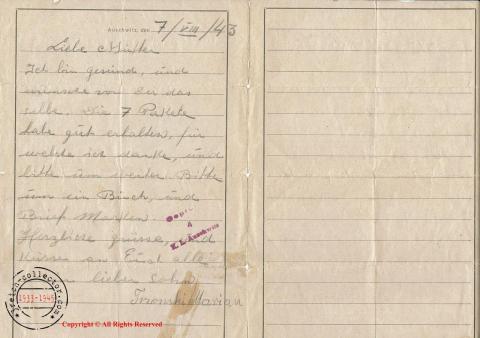 Auschwitz, den 7/VIII/43
Liebe Mutter
Ich bin gesund, und
von der das
selbe. Die 7 Pakete
habe gut erhalten, für
welche ich danke, und
bitte um weiter. Bitte
um ein Buch, und
Brief Marken.
Herzliche grüsse, und
Küssen an Euch alle
lieber sohn
Marian
Gepr
4
K. L. Auschwitz
reich-collector.com
1933-1945
Copyright © All Rights Reserved